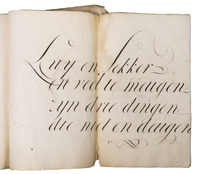 Luy en lekker
en veel te meugen
zyn drie dingen
die niet en deugen